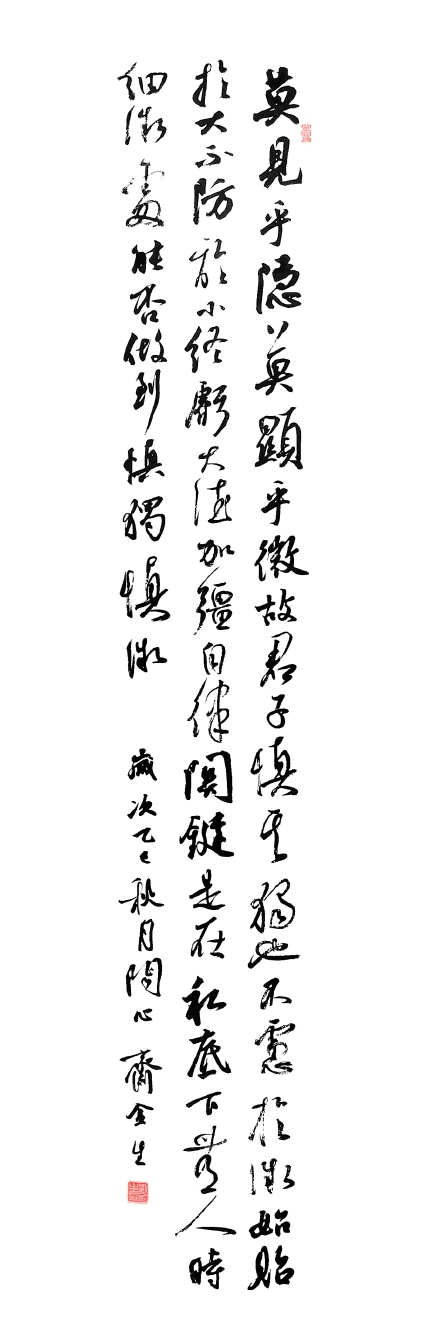 莫見乎隱莫顯乎微故君子慎其獨也不慮於微始貽
於大不防於小終虧大德加彊自律關鍵是在私底下無人時
細微處能否做到慎獨慎微
歲次乙巳秋月問心 齊金生